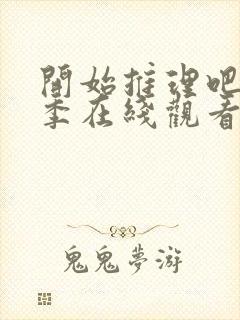 開始推理吧
季在綫觀看
鬼鬼夢游